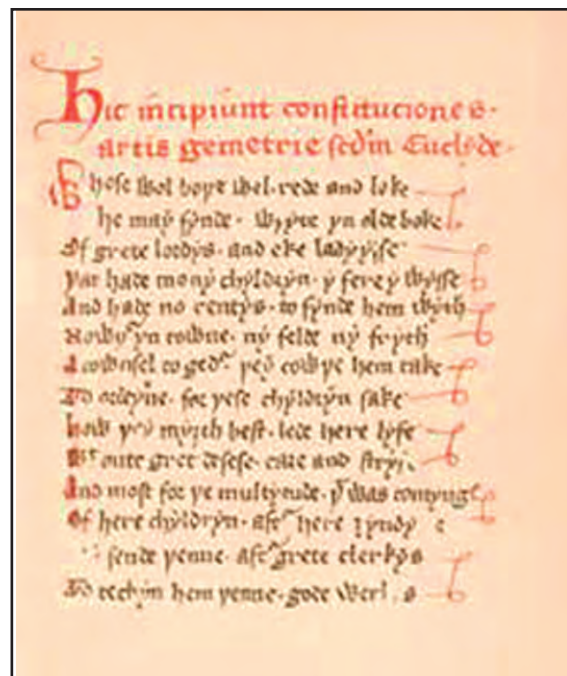 Hic incipiunt constituciones
artis gemetrie secdm Euclyde
Whose wol boþe wel rede and loke
he may fynde wryte yn olde boke
Of grete lordys and eke ladyysse
þat hade mony chyldryn y fere y wysse
And hade no rentys to fynde hem wyth
Nowþr yn towne ny felde ny fryth
A cownsel togedr þey cowþe hem take
To ordeyne for þese chyldryn sake
How þey myȝth best lede here lyfe
Wt oute gret desese care and stryf
And most for þe multytude þt was comyng
Of here chyldryn aftr here
sende þenne aftr grete clerkys
To techyn hem þenne gode werk s